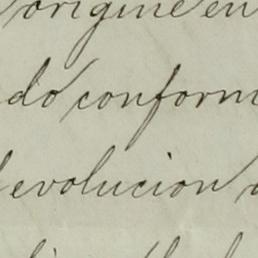 origine en
do conform
evolucion